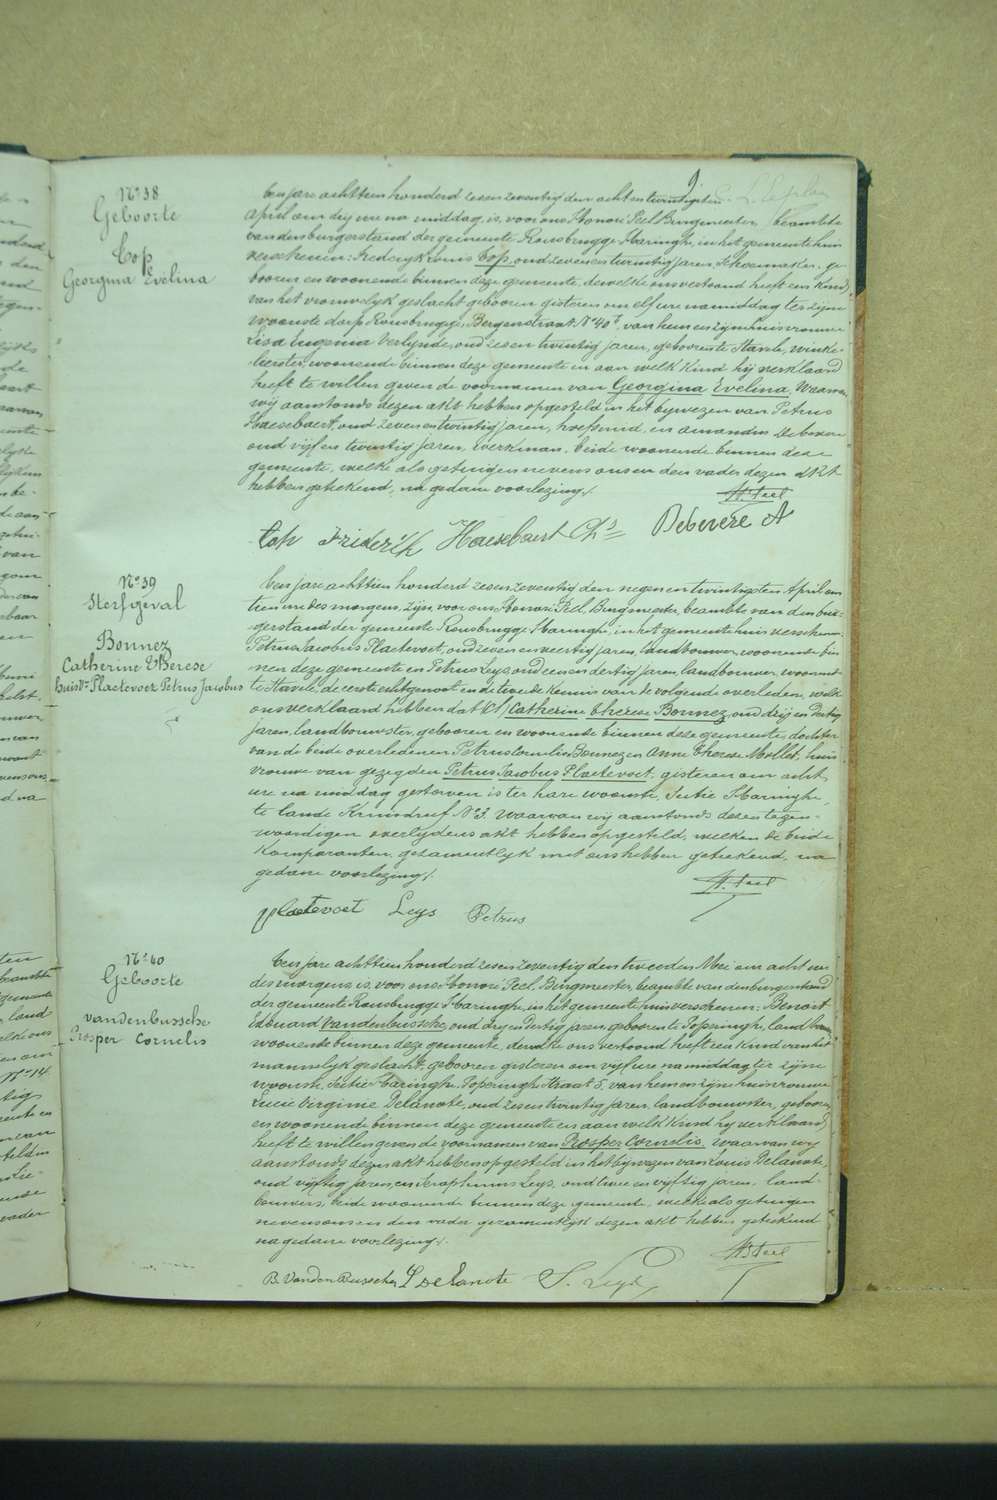 9.
N° 38
Geboorte
Cop
Georgina Evelina
Ten jare achttien honderd zes en zeventig den acht en twintigsten
April om drij ure na middag, is, voor ons Honoré Peel Burgmeester, beambte
van den burgerstand der gemeente Rousbrugge-Haringhe, in het gemeentehuis
verschenen: Frederyk Louis Cop, oud zeven en twintig jaren, schoenmaker, ge-
boren en woonende binnen deze gemeente, dewelke ons vertoond heeft een kind
van het vrouwelyk geslacht geboren gisteren om elf ure namiddag ter zijne
woonste dorp Rousbrugge, Bergenstraat N° 40, van hem en zijn huisvrouwe
Lisa Eugenia Verlynde, oud zes en twintig jaren, geboren te Stavele, winke-
lierster, woonende binnen deze gemeente en aan welk kind hij verklaard
heeft te willen geven de voornamen van Georgina Evelina. Waarvan
wij aanstonds dezen akt hebben opgesteld in het bywezen van Petrus
Haesebaert, oud zeven en twintig jaren, hoefsmid, en Amandus Debevere
oud vijf en twintig jaren, werkman, beide woonende binnen deze
gemeente, welke als getuigen nevens ons en den vader dezen akt
hebben geteekend, na gedane voorlezing.
H. Peel
Cop Friderik Haesebaert Ch Debevere A
N° 39
Sterfgeval
Bonnez
Catherine Therese
huisv. Plaetevoet Petrus Jacobus
Ten jare achttien honderd zes en zeventig den negen en twintigsten April om
tien ure des morgens, zijn, voor ons Honoré Peel, Burgmeester, beambte van den bur-
gerstand der gemeente Rousbrugge-Haringhe, in het gemeentehuis verschenen:
Petrus Jacobus Plaetevoet, oud zeven en veertig jaren, landbouwer, woonende bin
nen deze gemeente en Petrus Leys, oud een en dertig jaren, landbouwer, woonende
te Stavele, de eerste echtgenoot en de tweede kennis van de volgende overleden, welk
ons verklaard hebben dat Catherine Therese Bonnez, oud drij en dertig
jaren, landbouwster, geboren en woonende binnen deze gemeente, dochter
van de beide overledenen Petrus Cornelis Bonnez en Anne Therese Mollet, huis
vrouwe van gezegden Petrus Jacobus Plaetevoet, gisteren om acht
ure na middag gestorven is ter hare woonste, Sectie Haringhe,
te lande Kruisdreef N° 3. Waarvan wij aanstonds dezen tegen-
woordigen overlijdens akt hebben opgesteld, welken de beide
komparanten, gezamentlyk met ons hebben geteekend, na
gedane voorlezing.
H. Peel
Plaetevoet Leys Petrus
N° 40
Geboorte
Vandenbussche
Prosper Cornelis
Ten jare achttien honderd zes en zeventig den tweeden Mei om acht ure
des morgens, is, voor ons Honoré Peel, Burgmeester, beambte van den burgerstand
der gemeente Rousbrugge-Haringhe, in het gemeentehuis verschenen: Benoit
Edouard Vandenbussche, oud drij en dertig jaren, geboren te Poperinghe, landbouwer
woonende binnen deze gemeente, dewelke ons vertoond heeft een kind van het
mannelyk geslacht, geboren gisteren om vijf ure namiddag ter zijne
woonste, Sectie Haringhe, Poperinghe Straat 5, van hem en zijne huisvrouwe
Lucie Virginie Delanote, oud zes en twintig jaren, landbouwster, geboren
en woonende binnen deze gemeente en aan welk kind hij verklaard
heeft te willen geven de voornamen van Prosper Cornelis. Waarvan wij
aanstonds dezen akt hebben opgesteld in het bijwezen van Louis Delanote,
oud vijftig jaren, en Seraphinus Leys, oud twee en vijftig jaren, land-
bouwers, beide woonende binnen deze gemeente, welke als getuigen
nevens ons en den vader gezamentlyk dezen akt hebben geteekend
na gedane voorlezing.
H. Peel
B. VandenBussche L Delanote S. Leys